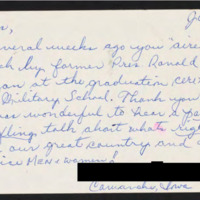 Ja
s,
everal weeks ago you "aire
ch by former Pres Ronald
an at the graduation cere
Military School. Thank you
as wonderful to hear a pe
fling talk about what's righ
our great country and
ice men & women!
Camanche, Iowa